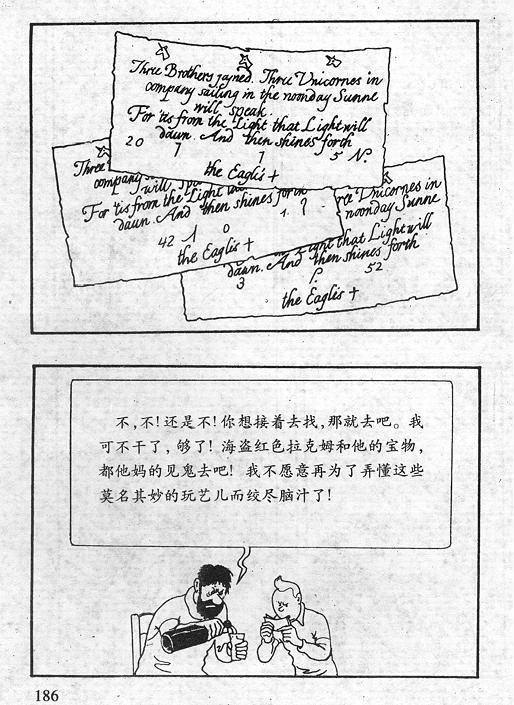 Three Brothers joyned. Three Unicornes in
company sailing in the noonday Sunne
will speak.
For 'tis from the Light that Light will
dawn. And then shines forth
20 7 1 5 N.
the Eagles +
Three
company
will
For 'tis from the Light
dawn. And then shines forth
42 1 0 1.
the Eaglis +
Unicornes in
noonday Sunne
Light that Light will
dawn. And then shines forth
3 52
the Eaglis +
不,不!还是不!你想接着去找,那就去吧。我
可不干了,够了!海盗红色拉克姆和他的宝物,
都他妈的见鬼去吧!我不愿意再为了弄懂这些
莫名其妙的玩艺儿而绞尽脑汁了!
186